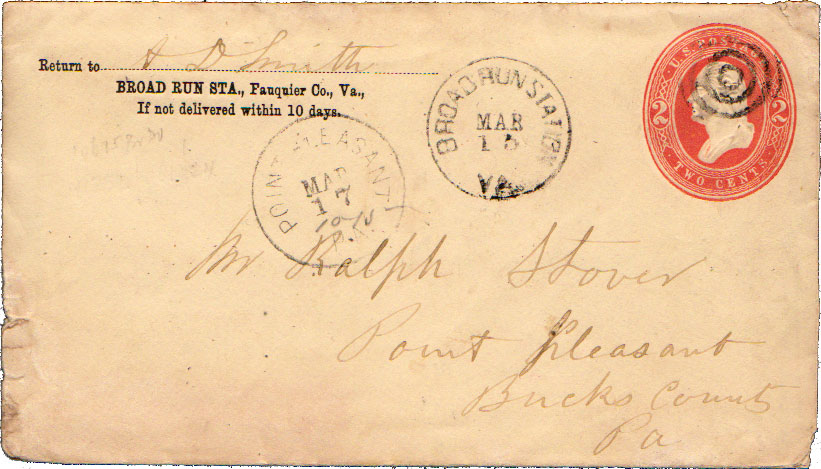 Return to A D Smith
BROAD RUN STA., Fauquier Co., Va.,
If not delivered within 10 days.
BROAD RUN STATION
MAR
15
VA
U.S. POSTAGE
2 2
TWO CENTS
POINT PLEASANT
MAR
17
PA.
Mr Ralph Stover
Point Pleasant
Bucks County
Pa